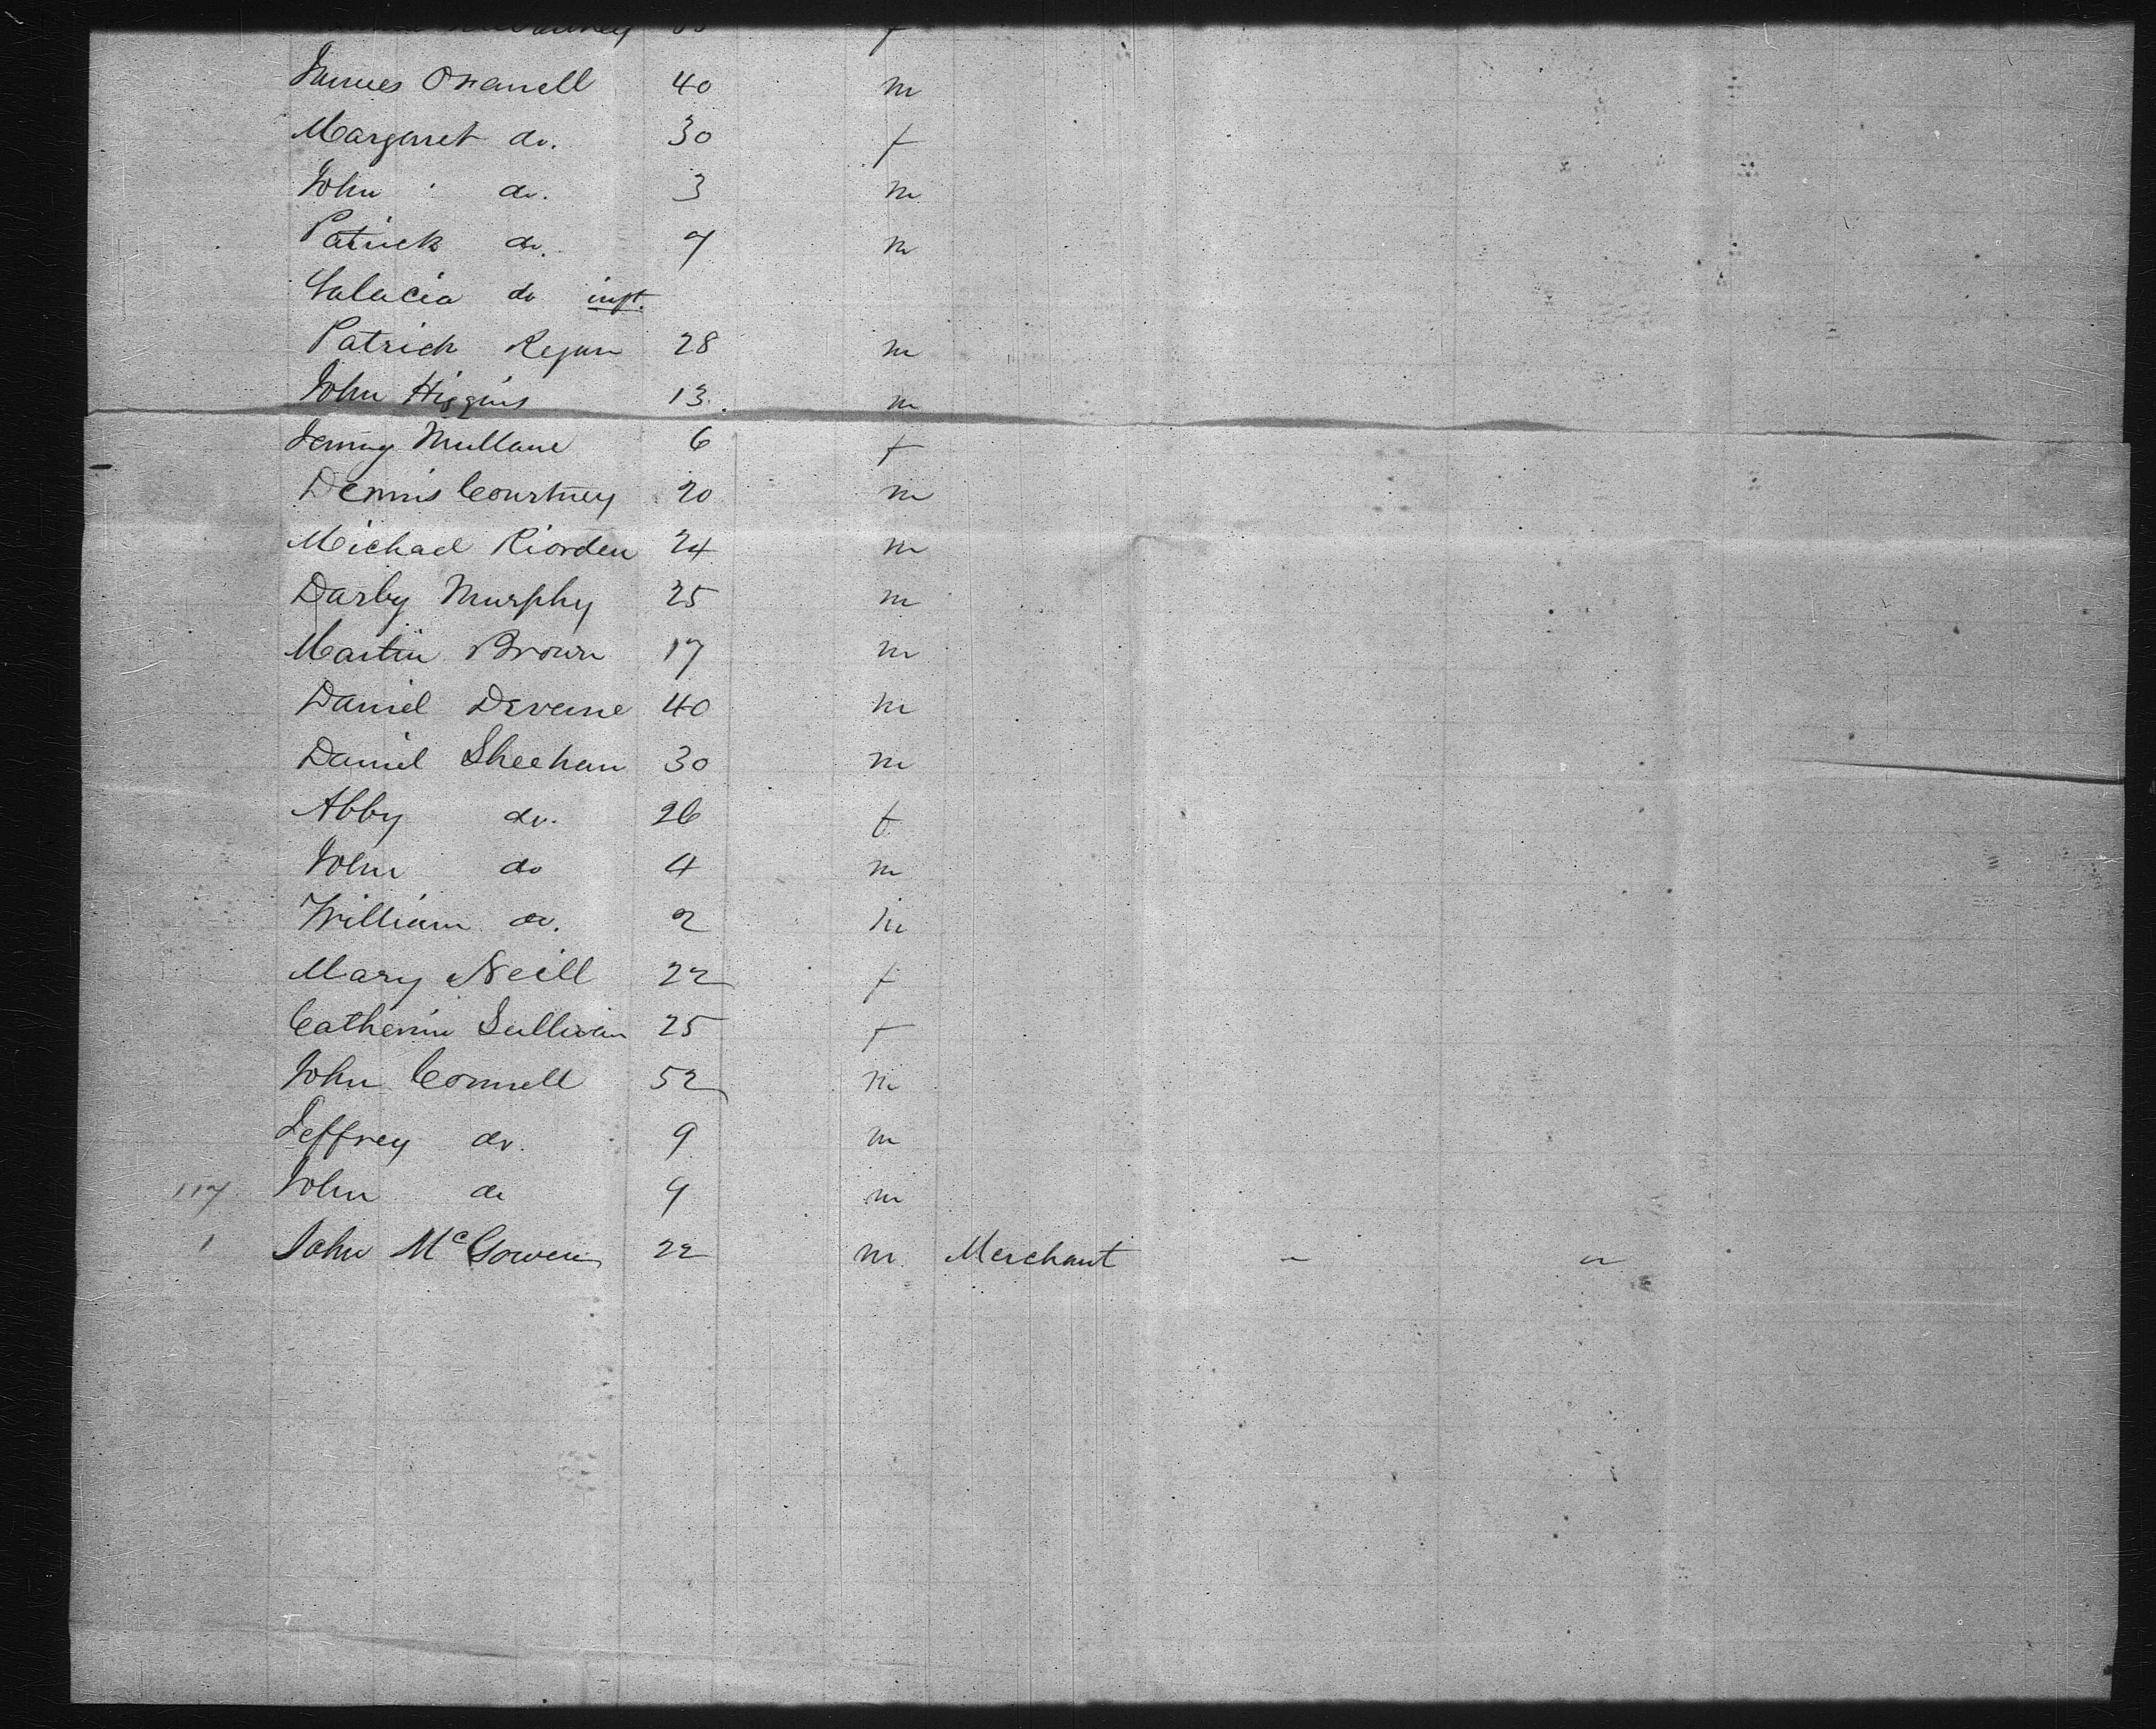 James O'Farrell 40 m
Margaret do. 30 f
John do. 3 m
Patrick do. 7 m
Galacia do inft.
Patrick Regan 28 m
John Higgins 13 m
Jenny Mullane 6 f
Dennis Courtney 20 m
Michael Riorden 24 m
Darby Murphy 25 m
Martin Brown 17 m
Daniel Devane 40 m
Daniel Sheehan 30 m
Abby do. 26 f
John do 4 m
William do. 2 m
Mary Neill 22 f
Catherine Sullivan 25 f
John Connell 52 m
Jeffrey do. 9 m
117 John do 9 m
1 John McGowen 22 m. Merchant